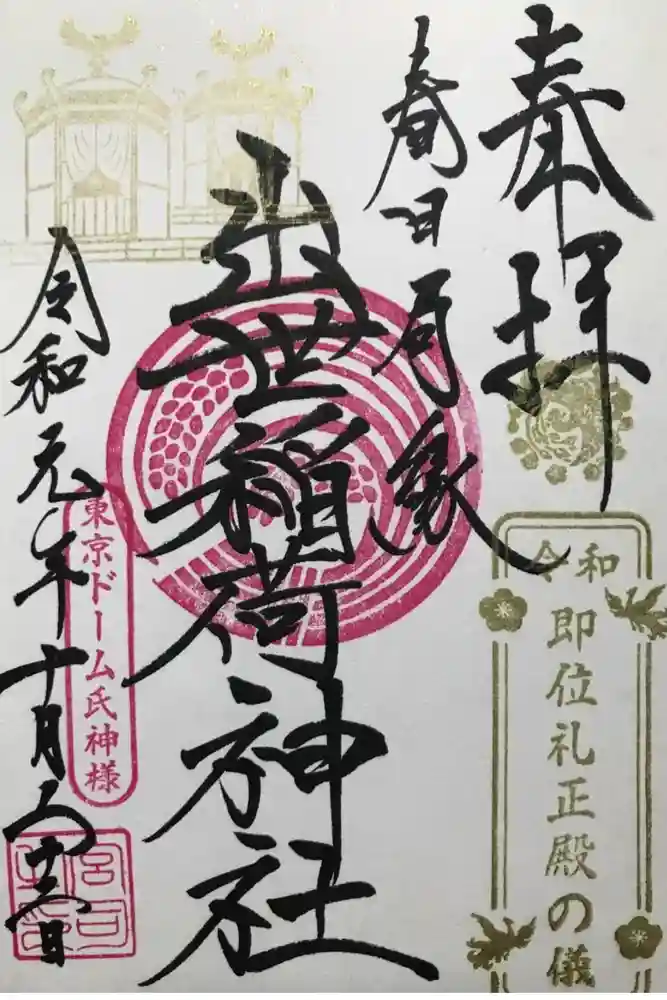 奉拝
春日局縁
出世稲荷神社
令和元年十月二十二日
東京ドーム氏神様
令和
即位礼正殿の儀